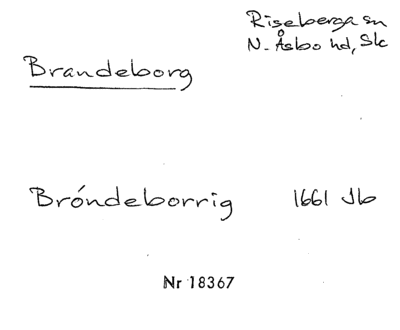 Riseberga sn
N. Åsbo hd, Sk
Brandeborg
Bróndeborrig 1661 Jb
Nr 18367